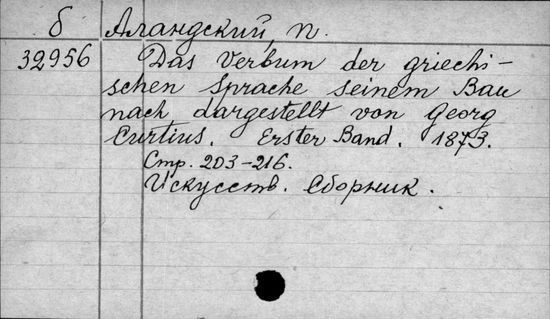 б Аландский, П.
32956 Das Verbum der griechi-
schen Sprache seinem Bau
nach dargestellt von Georg
Curtius. Erster Band. 1873.
Стр. 203-216.
Искусств. Сборник.